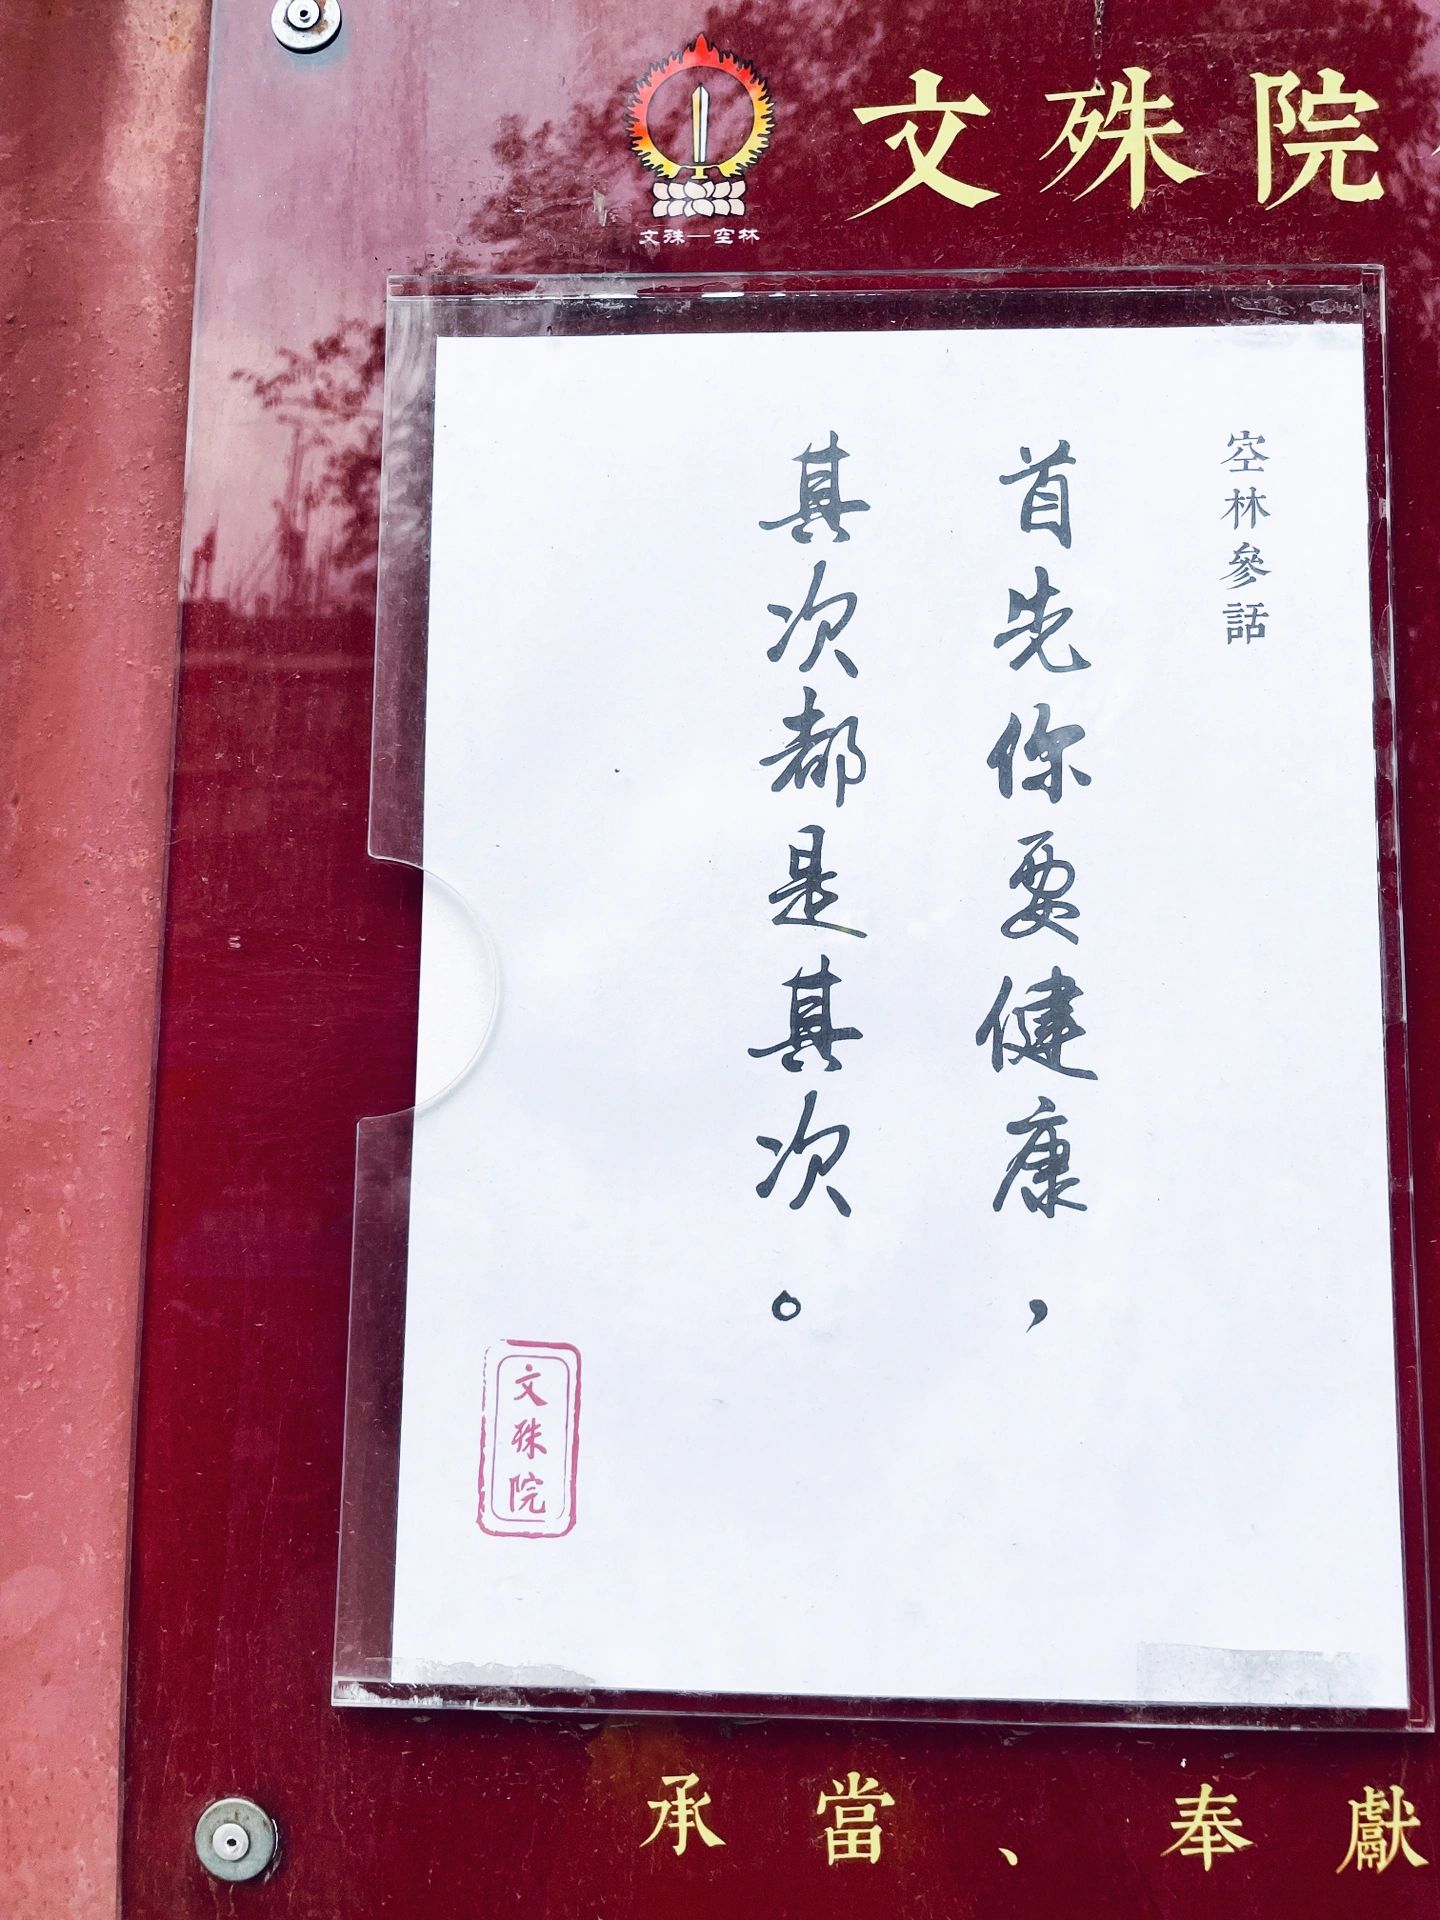 文殊院
文殊—空林
空林參話
首先你要健康，
其次都是其次。
文殊院
承當、奉獻